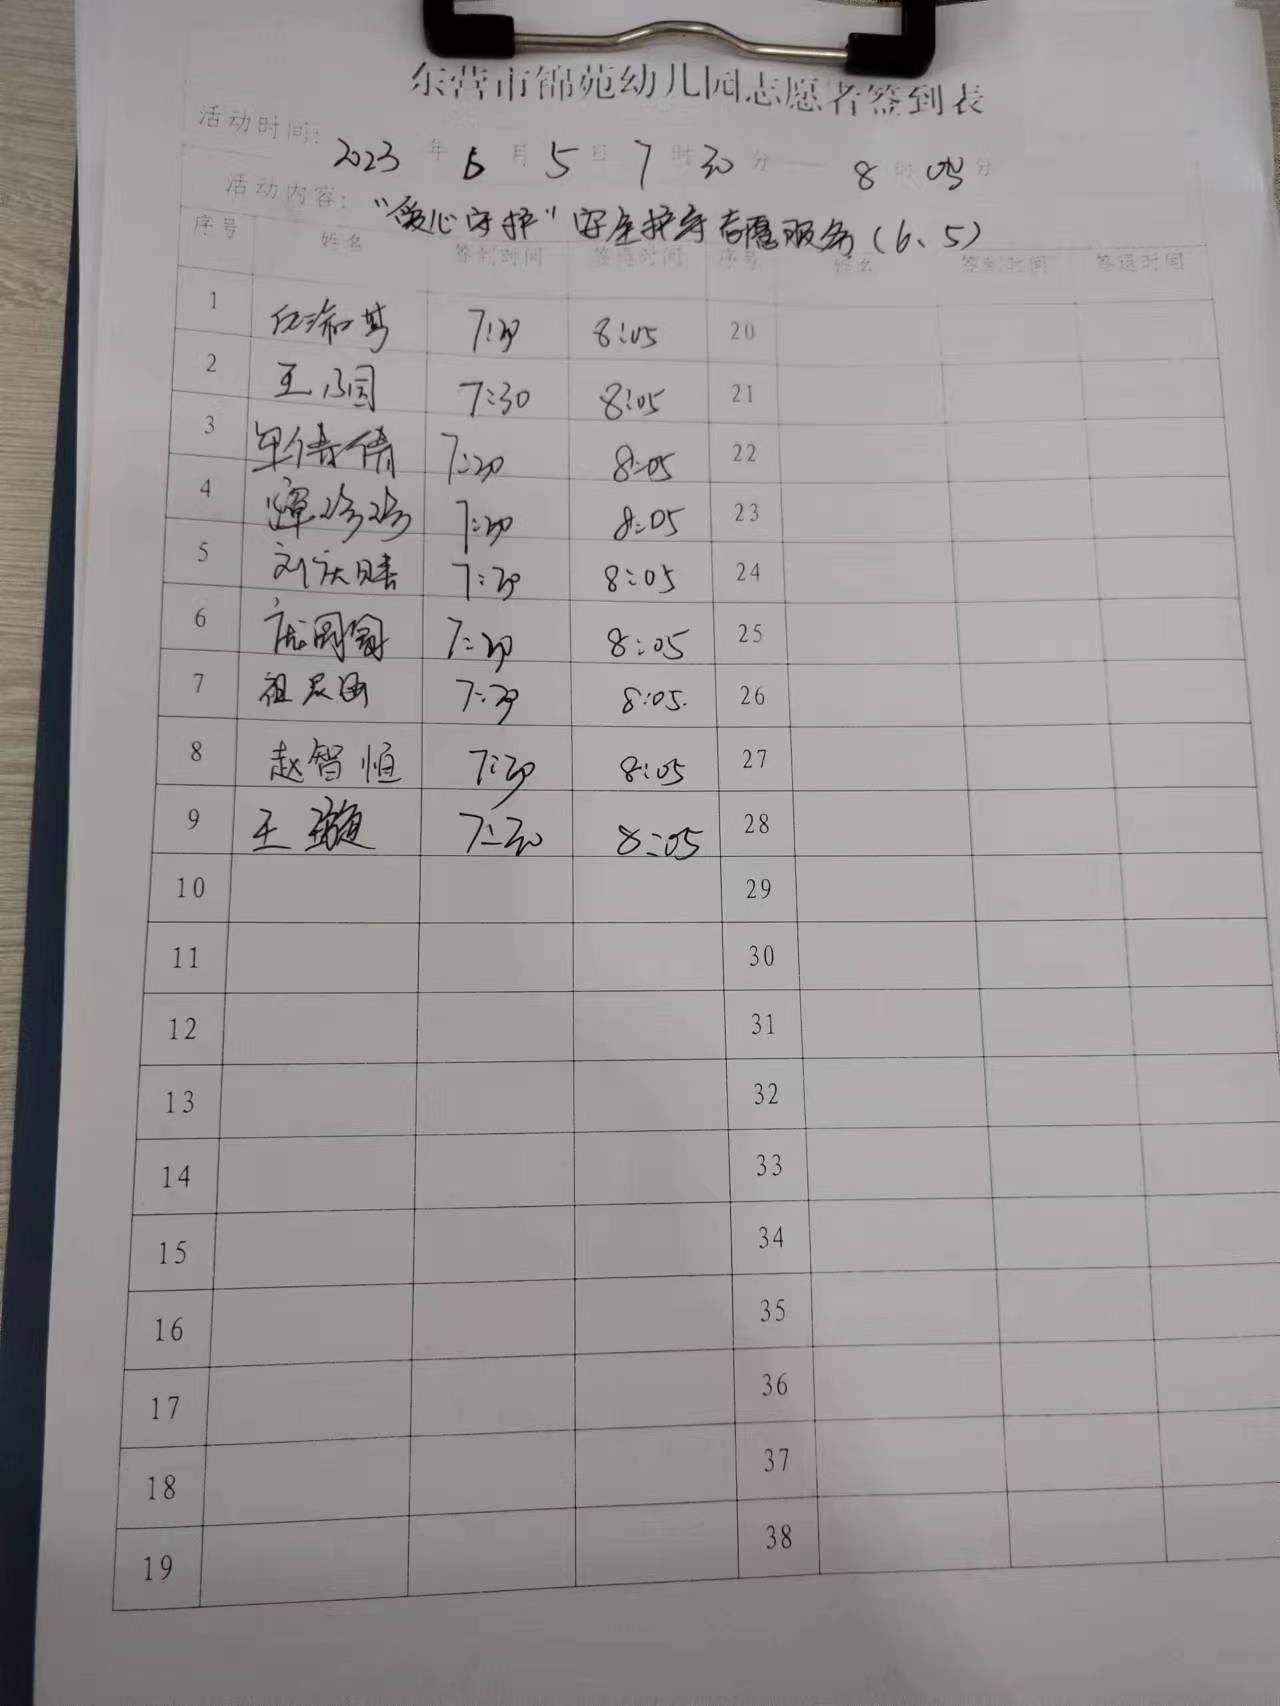 东营市锦苑幼儿园志愿者签到表
活动时间: 2023 年 6 月 5 日 7 时 30 分 — 8 时 05 分
活动内容: “爱心守护”安全护守志愿服务(6、5)
序号 姓名 签到时间 签退时间 序号 姓名 签到时间 签退时间
1 7:30 8:05 20
2 王 7:30 8:05 21
3 单倩倩 7:30 8:05 22
4 7:30 8:05 23
5 刘庆 7:30 8:05 24
6 7:30 8:05 25
7 祖 7:30 8:05. 26
8 赵智恒 7:30 8:05 27
9 王璇 7:30 8:05 28
10 29
11 30
12 31
13 32
14 33
15 34
16 35
17 36
18 37
19 38